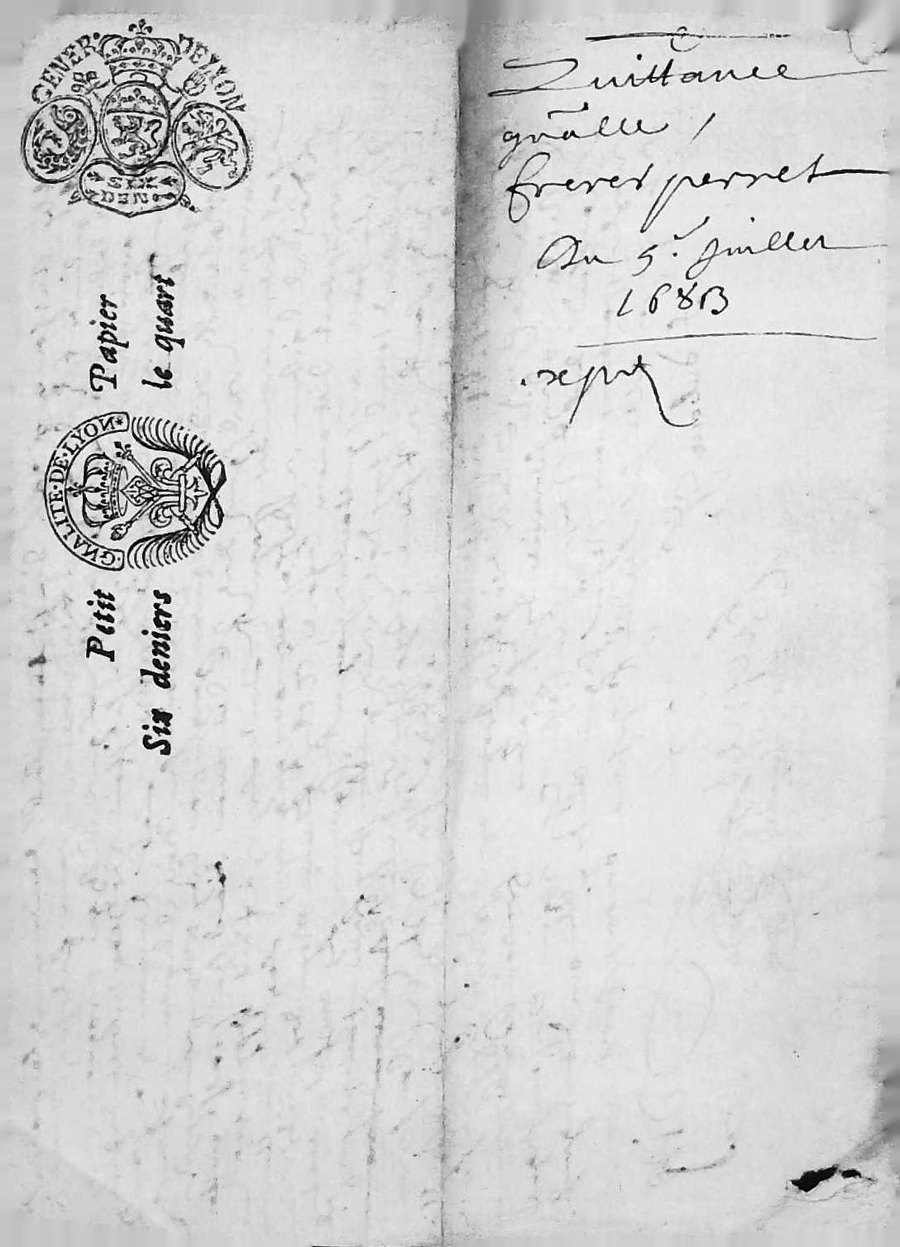 GENER· DE LYON
SIX
DEN·
Petit Papier
Six deniers le quart
GNALITE·DE·LYON
Quittance
gnãlle /
freres perret
Du 5.e Juillet
1683